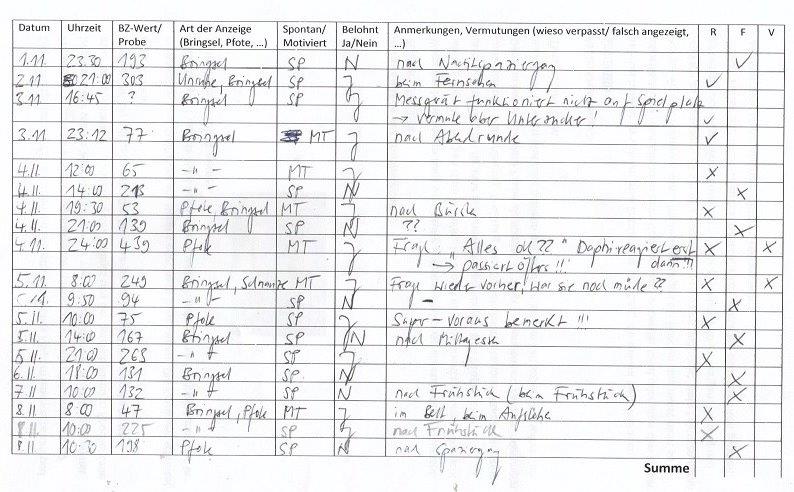 Datum Uhrzeit BZ-Wert/ Probe Art der Anzeige (Bringsel, Pfote, ...) Spontan/ Motiviert Belohnt Ja/Nein Anmerkungen, Vermutungen (wieso verpasst/ falsch angezeigt, ...) R F V
1.11. 23.30 193 Bringsel SP N nach Nachtspaziergang ✓
2.11 21:00 303 Unruhe, Bringsel SP J beim Fernsehen ✓
3.11 16:45 ? Bringsel SP J Messgerät funktioniert nicht auf Spielplatz
→ vermute aber Unterzucker! ✓
3.11 23:12 77 Bringsel MT J nach Abendrunde ✓
4.11. 12:00 65 -"- MT J X
4.11. 14:00 213 -"- SP N X
4.11. 19:30 53 Pfote Bringsel MT J nach X
4.11. 21:00 139 Bringsel SP N ?? X
4.11. 24:00 439 Pfote MT J Frage „Alles ok??" Daphi reagiert erst X X
→ passiert öfters!!! dann!!
5.11. 8:00 249 Bringsel, Schnauze MT J Frage wieder vorher, war sie noch müde?? X X
9:50 94 -"- SP N - X
5.11. 10:00 75 Pfote SP J Super-voraus bemerkt!!! X
5.11. 14:00 167 Bringsel SP J/N nach Mittagessen X
5.11. 21:00 263 -"- SP J X
6.11. 18:00 131 Bringsel SP N X
7.11 10:00 132 -"- SP N nach Frühstück (beim Frühstück) X
8.11 8:00 47 Bringsel, Pfote MT J im Bett, beim Aufstehen X
8.11. 10:00 225 -"- SP J nach Frühstück X
8.11 10:30 198 Pfote SP N nach Spaziergang X
Summe